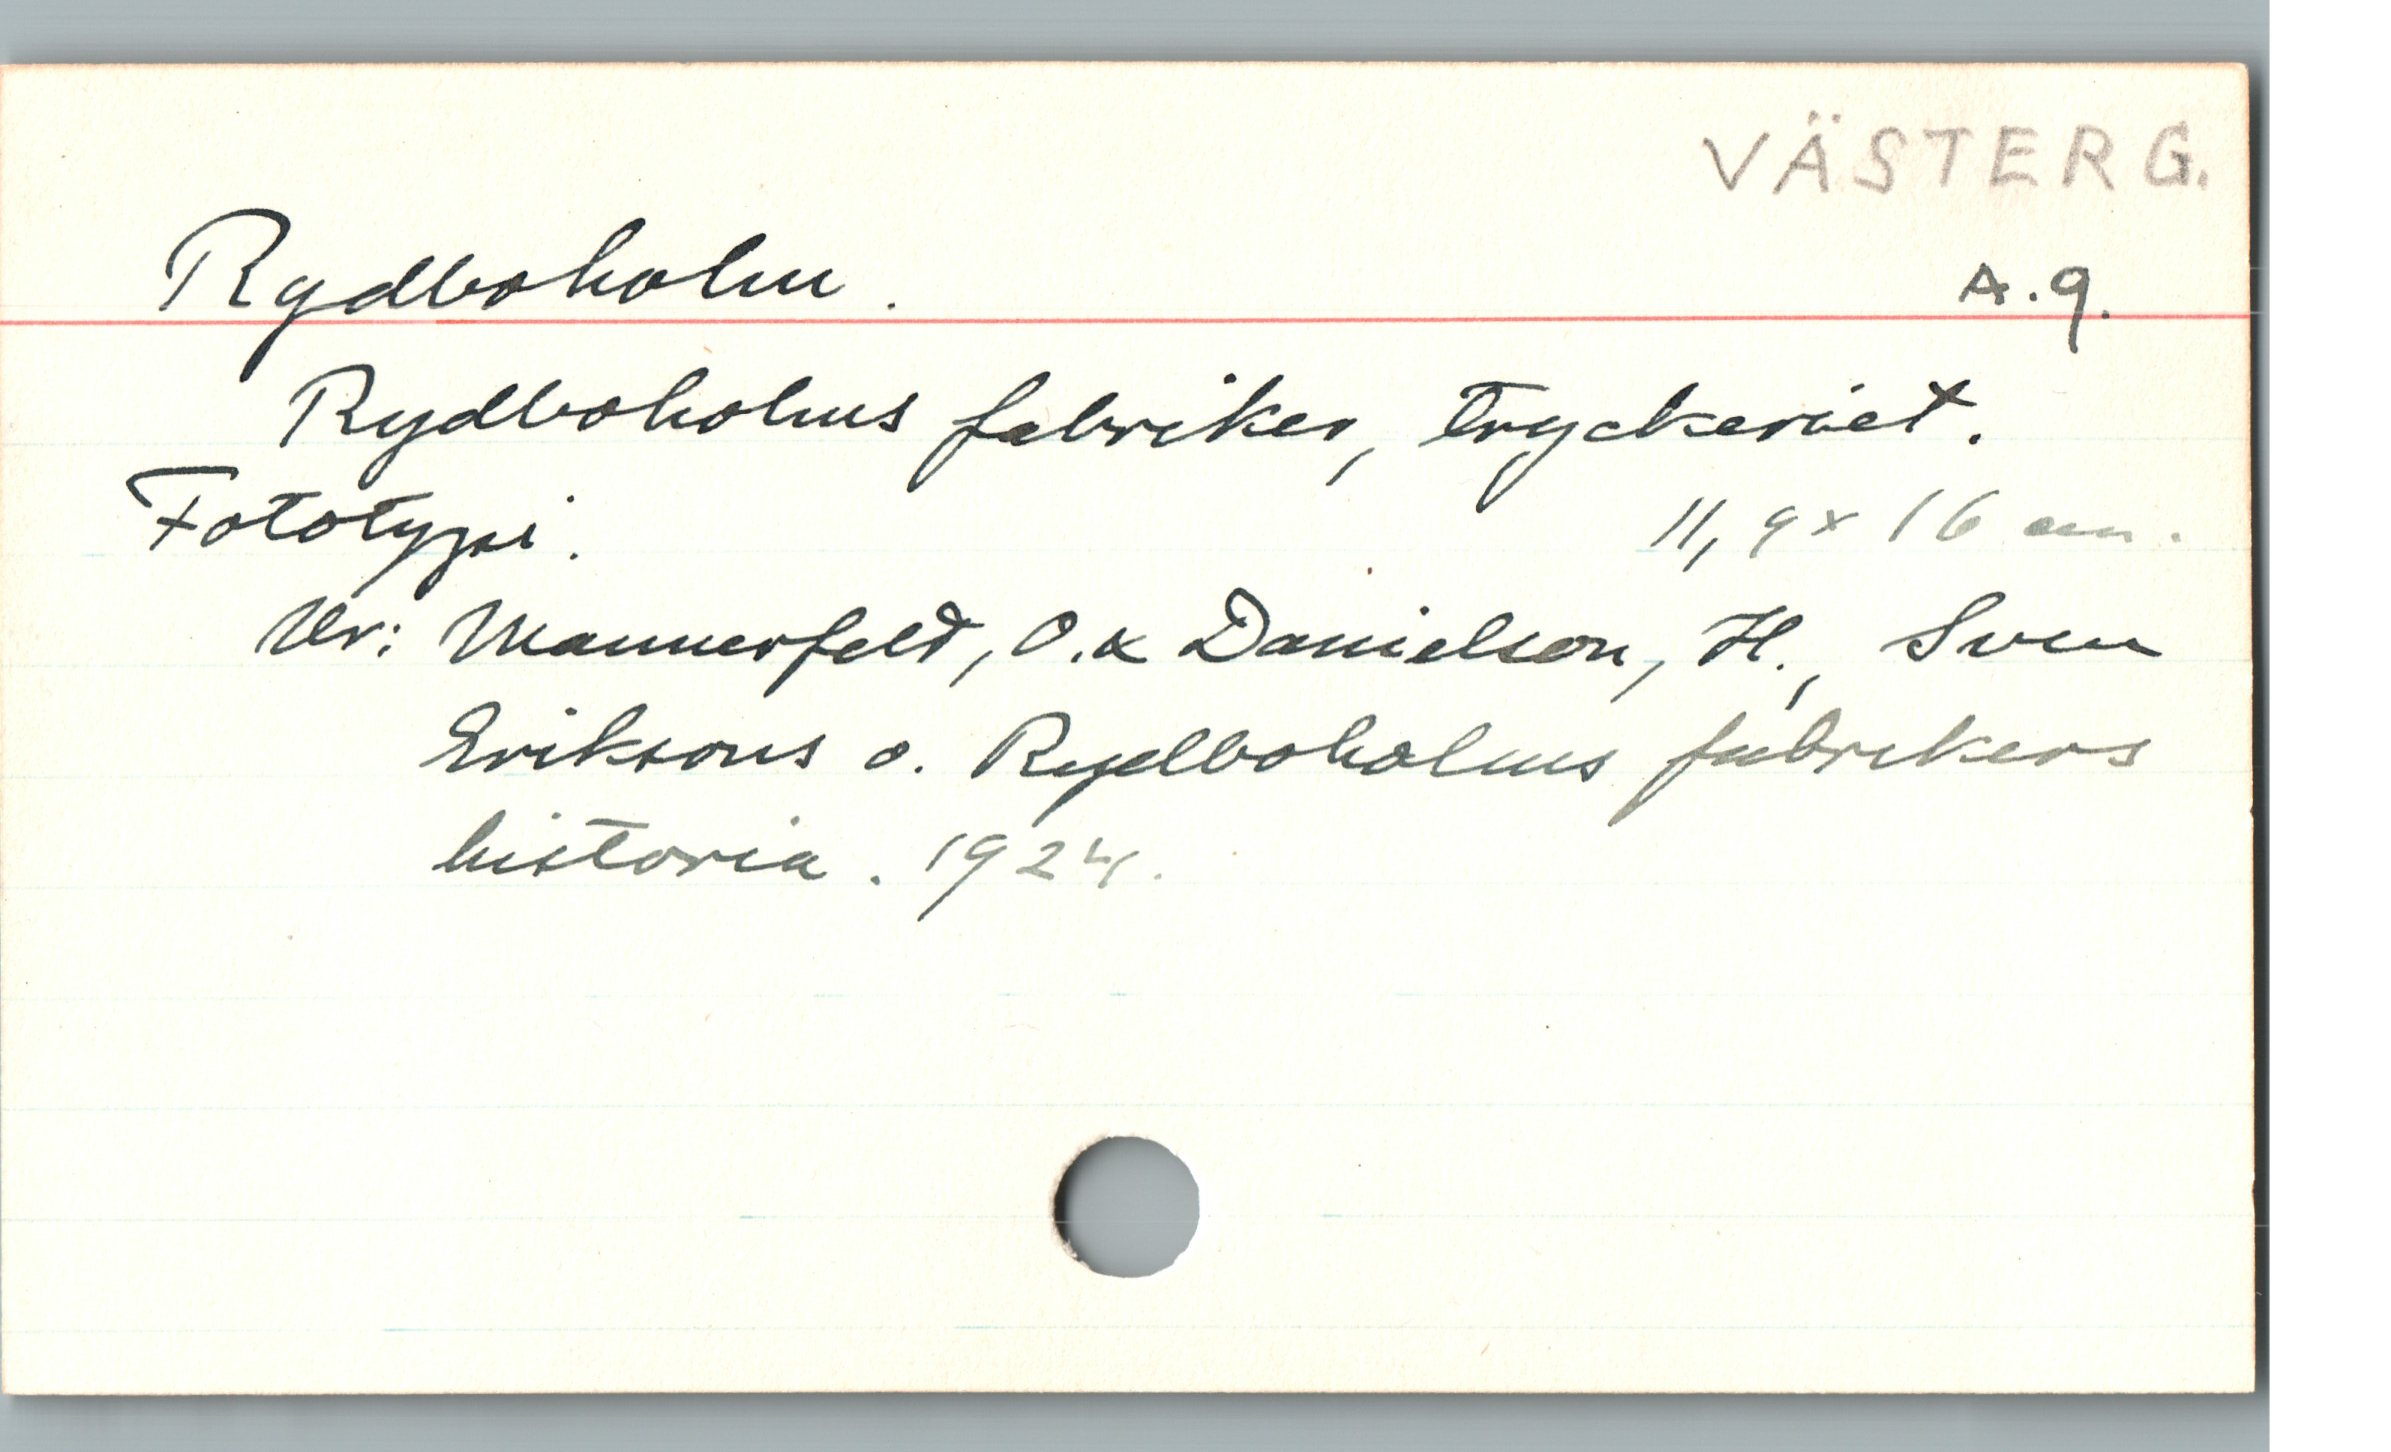 VÄSTERG.
Rydboholm.
A.9.
Rydboholms fabriker, tryckeriet.
Fototypi. 11,9 x 16 cm.
Ur: Mannerfelt, O. & Danielson, H., Sven
Eriksons o. Rydboholms fabrikers
historia. 1924.